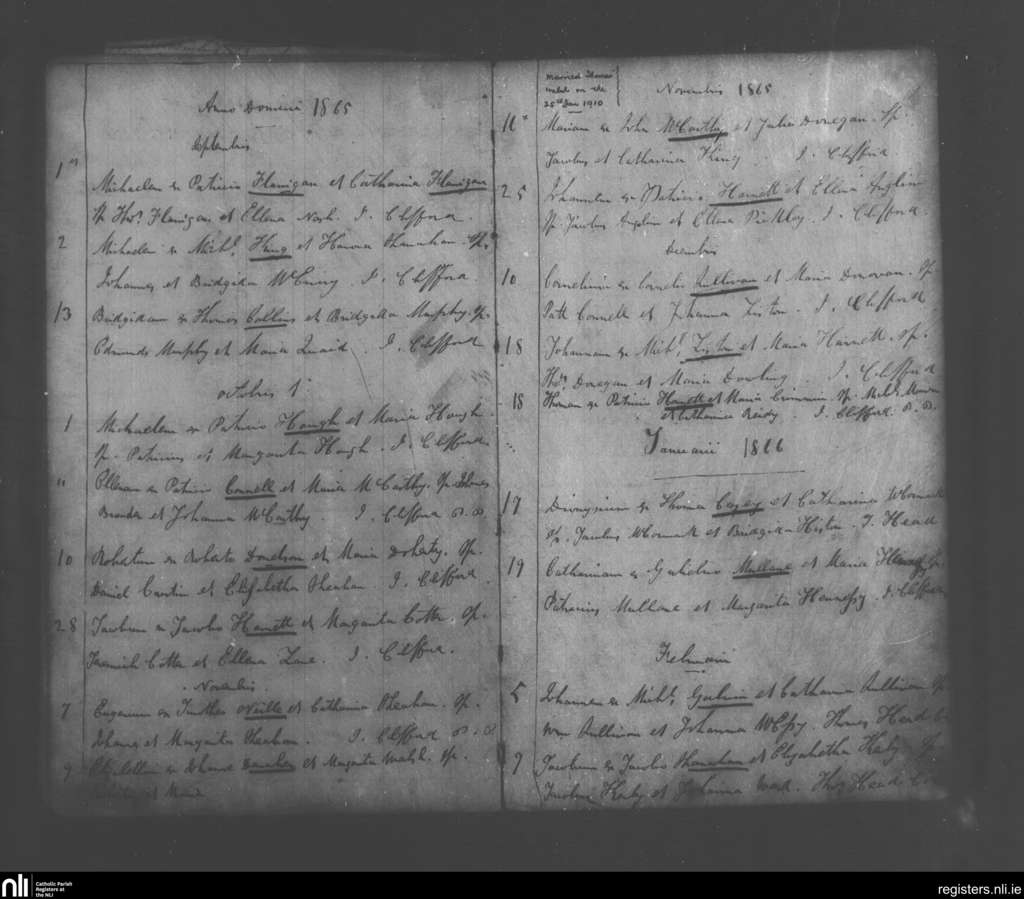 Anno Domini 1865
Septembris
1
Michaelem ex Patricio Flanigan et Catharina Flanigan
Sp. Thos. Flanigan et Ellena Nash. J. Clifford.
2
Michaelem ex Michl. King et Honora Shanahan. Sp.
Johannes et Bridgida J. Clifford
13
Bridgidam ex Thomas Collins et Bridgida Murphy. Sp.
Edmundo Murphy et Maria Quaid. J. Clifford
Octobris 1
1
Michaelem ex Patricio Hough et Maria Hough.
Sp. Patricius et Margarita Hough. J. Clifford
"
Ellenam ex Patricio Connell et Maria McCarthy. Sp.
et Johanna McCarthy. J. Clifford
10
Robertum ex Roberto et Maria Doherty. Sp.
Daniel et Elizabetha Sheahan. J. Clifford.
28
Jacobum ex Jacobo Harnett et Margarita Cotter. Sp.
Jeremiah Cotter et Ellena Lane. J. Clifford.
Novembris.
7
Eugenium ex Timotheo ONeille et Catharina Sheehan. Sp.
Johannes et Margarita Sheehan. J. Clifford P.P.
9
ex Johanne et Margarita Walsh. Sp.
et Maria
Married Thomas
Walsh on the
25th Jan 1910
Novembris 1865
11
Mariam ex John McCarthy et Julia Donegan. Sp.
Jacobus et Catharina King J. Clifford.
25
Johannem ex Patricio Harnett et Ellena Anglim
Sp. Jacobus Anglim et Ellena J. Clifford.
Decembris
10
Cornelium ex Cornelio Sullivan et Maria Donovan. Sp.
Patt Connell et Johanna Liston. J. Clifford
18
Johannam ex Michl. Liston et Maria Harnett. Sp.
Thos. Donegan et Maria Dowling. J. Clifford
18
Thomam ex Patricio Harnett et Maria Sp. Michl.
et Catharina Reidy. J. Clifford. P.P.
Januarii 1866
17
Dionysium ex Thoma Casey et Catharina McCormack
Sp. Jacobus McCormack et Bridgida Histon. T. Head
19
Catharinam ex Gulielmo Mullane et Maria Hennessy Sp.
Patricius Mullane et Margarita Hennessy. J. Clifford
Februarii
5
Johannem ex Michl. et Catharina Sullivan Sp
Wm Sullivan et Johanna Thomas Head C.
7
Jacobum ex Jacobo Shanahan et Elizabetha Healy. Sp.
et Johanna Ward. Thos Head C.
nli
Catholic Parish
Registers at
the NLI
registers.nli.ie